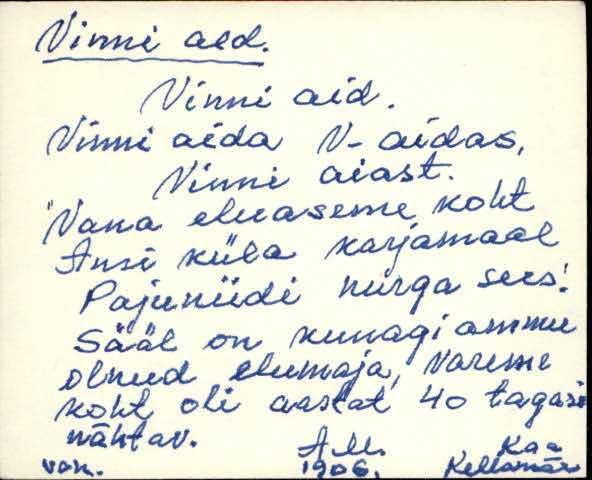 Vinni aed.
Vinni aid.
Vinni aida V- aidas,
Vinni aiast.
"Vana eluaseme koht
Ansi küla karjamaal
Pajuniidi nurga sees.
Sääl on kunagi ammu
olnud elumaja, vareme
koht oli aastat 40 tagasi
nähtav.
A.M. Kaa
van. 1906. Kellamäe